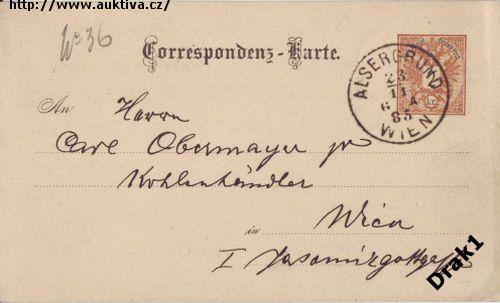 http://www.auktiva.cz/
No 36
Correspondenz-Karte.
ALSERGRUND
23
11
6 A
85
WIEN
An Herrn
Carl Obermayer jr
Kohlenhändler
in Wien
I Jasomirgottgasse
Drak1